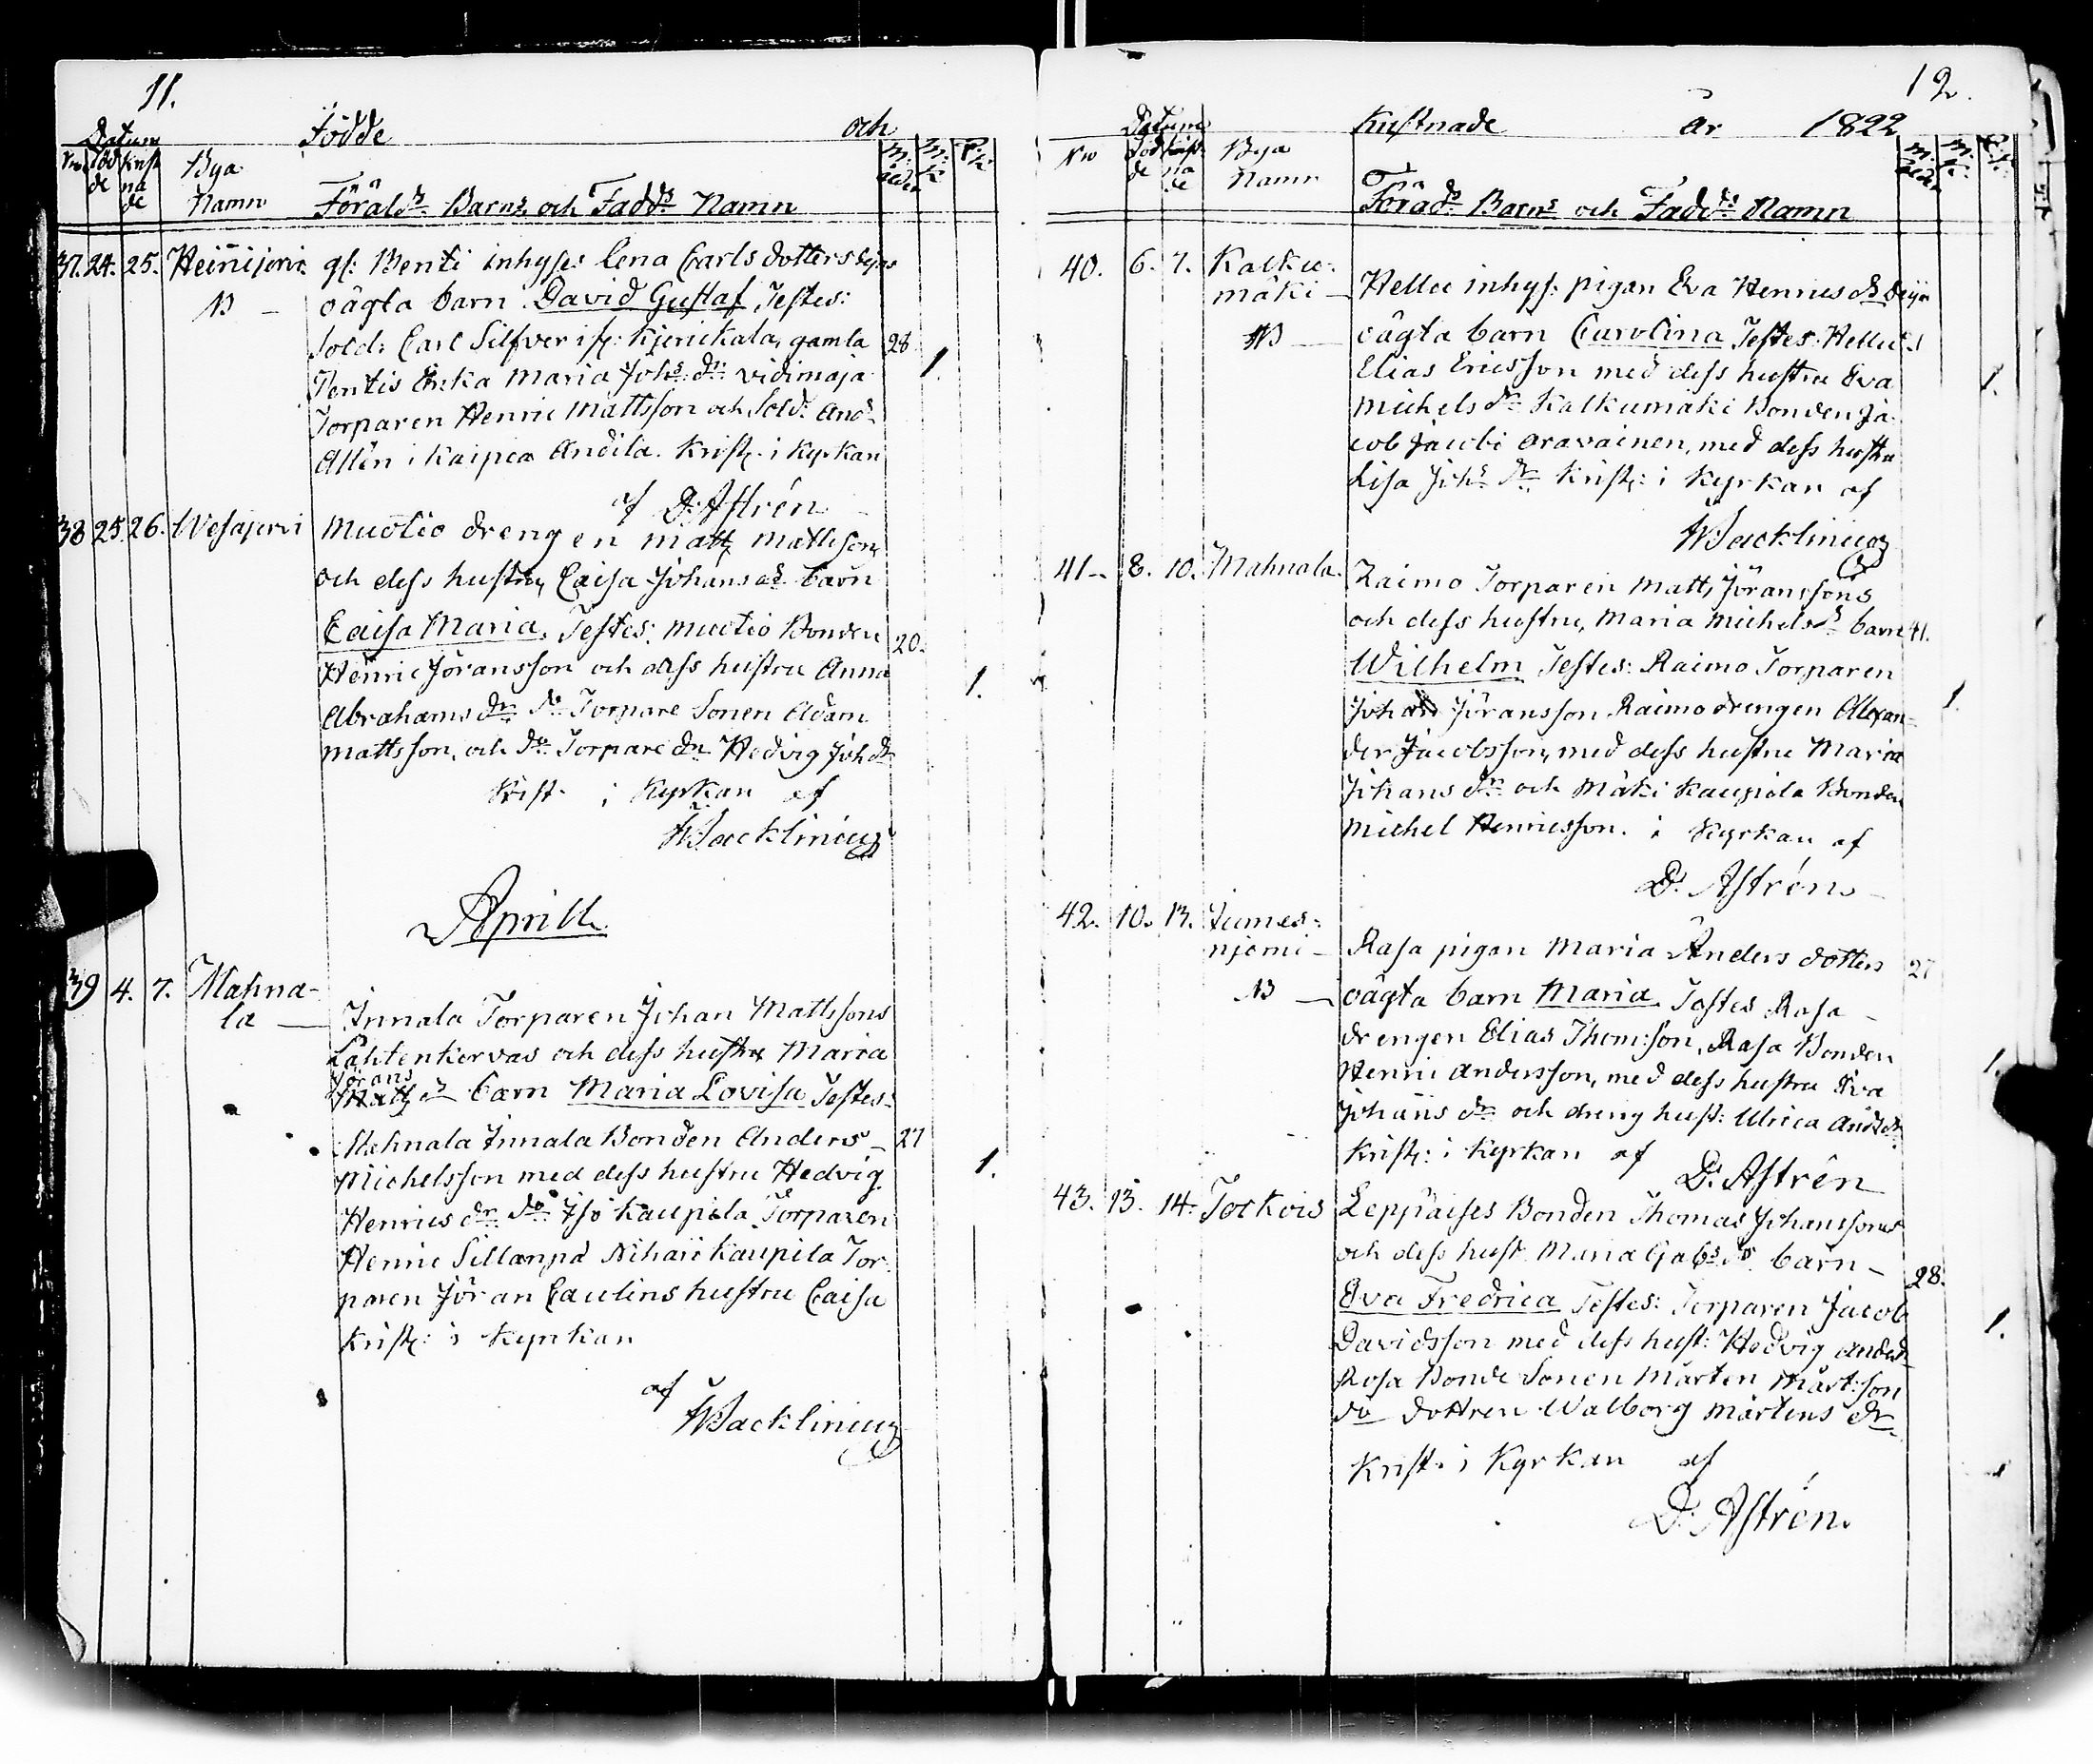 11.
Födde och
Datum
No Föd de Krist na de Bya Namn M. ålder M. K. P. K.
Föräld:s Barns och Fadd:s Namn
37. 24. 25. Heinijervi gl: Benti inhyses Lena Carls dotters
NB — oägta barn David Gustaf, Testes:
Sold: Carl Silfver ifr: Kjerickala, gamla 28
Pentis Enka Maria Joh:s dr: Vidimaja 1.
Torparen Henric Mattsson och Sold: And:
Allén i Kaipea Andila. Krist: i Kyrkan
af D: Astrén
38 25. 26. Wesajervi Muotio drengen Matts Mattsons
och dess hustru, Caisa Johans d:s barn
Caisa Maria, Testes: Muotio Bonden 20.
Henric Jöransson och dess hustru Anna
Abrahams dr: do Torpare Sonen Adam 1.
Mattsson, och do Torpare dn Hedvig Joh dr
Krist. i Kyrkan af
W Backlinius
Aprill
39 4. 7. Mahna-
la — Innala Torparen Johan Mattssons
Lähtenkorvas och dess hustru Maria
Jörans
Matts d:s barn Maria Lovisa Testes:
Mahnala Innala Bonden Anders 27
Michelsson med dess hustru Hedvig 1.
Henrics dr: do Iso Kaupila Torparen
Henric Sillanpä Nihari Kaupila Tor-
paren Jöran Caulins hustru Caisa
Krist: i Kyrkan
af
W Backlinius
12.
Kristnade år 1822
Datum
No Föd de Krist na de Bya Namn M. ålder M. K. P. K.
Föräd:s Barns och Fadd:s Namn
40. 6. 7. Kalku-
mäki — Hellu inhys: pigan Eva Henrics d:s
NB — oägta barn Carolina Testes: Hellu
Elias Ericsson med dess hustru Eva 1.
Michels dr: Kalkumäki Bonden Ja-
cob Jacobi Aravainen, med dess hustru
Lisa Joh:s dr: Krist: i Kyrkan af
W Backlinius
41. 8. 10. Mahnala. Raimo Torparen Matts Jöranssons
och dess hustru, Maria Michels d:s barn 41.
Wilhelm Testes: Raimo Torparen
Johan Jöransson Raimo drengen Alexan- 1.
der Jacobsson, med dess hustru Maria
Johans dr: och Mäki Kaupila Bonden
Michel Henricsson. i Kyrkan af
D: Astrén
42. 10. 13. Jumes-
njemi — Rasa pigan Maria Anders dotters 27
NB — oägta barn Maria Testes Rasa
drengen Elias Thom:son, Rasa Bonden
Henric Andersson, med dess hustru Eva 1.
Johans dr: och dreng hust: Ulrica And:s dr
Krist: i Kyrkan af D: Astrén
43. 13. 14. Tockois Leppäises Bonden Thomas Johanssons
och dess hust. Maria Gab:s d:s barn — 28.
Eva Fredrica Testes: Torparen Jacob
Davidsson med dess hust: Hedvig Anders d 1.
Rosa Bonde Sonen Mårten Mårt:son
do dottren Walborg Mårtens dr
Krist. i Kyrkan af
D: Astrén.